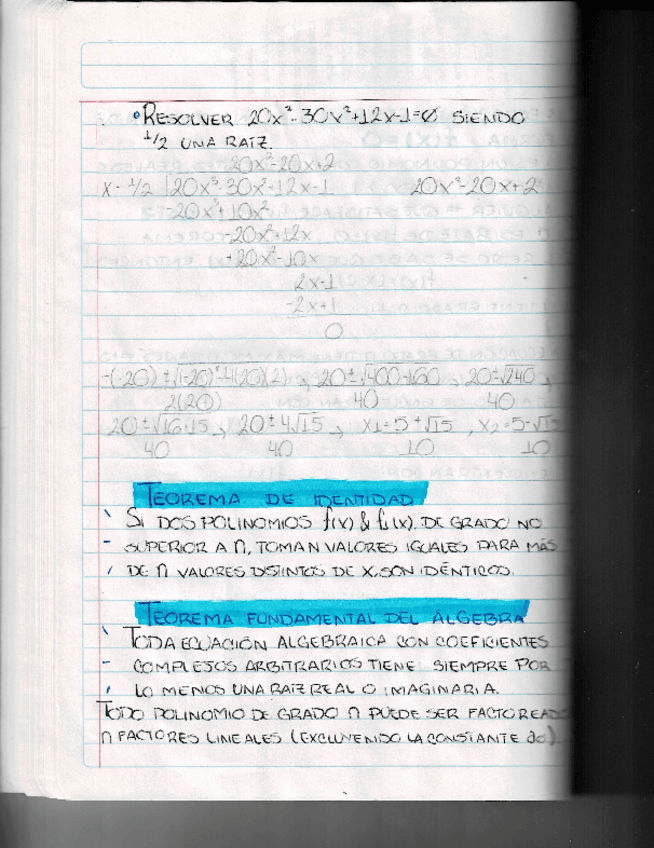 • RESOLVER 20x³-30x²+12x-1=0 SIENDO
1/2 UNA RAÍZ.
20x²-20x+2
x-1/2 |20x³-30x²+12x-1 20x²-20x+2
-20x³+10x²
-20x²+12x
+20x²-10x
2x-1
-2x+1
0
-(-20)±√(-20)²-4(20)(2) , 20±√400-160 , 20±√240 ,
2(20) 40 40
20±√16·15 , 20±4√15 , x1=5+√15 , x2=5-√15
40 40 10 10
TEOREMA DE IDENTIDAD
SI DOS POLINOMIOS f(x) & f1(x), DE GRADO NO
SUPERIOR A n, TOMAN VALORES IGUALES PARA MÁS
DE n VALORES DISTINTOS DE X, SON IDÉNTICOS.
TEOREMA FUNDAMENTAL DEL ÁLGEBRA
TODA ECUACIÓN ALGEBRAICA CON COEFICIENTES
COMPLEJOS ARBITRARIOS TIENE SIEMPRE POR
LO MENOS UNA RAÍZ REAL O IMAGINARIA.
TODO POLINOMIO DE GRADO n PUEDE SER FACTOREADO
n FACTORES LINEALES (EXCLUYENDO LA CONSTANTE a0)